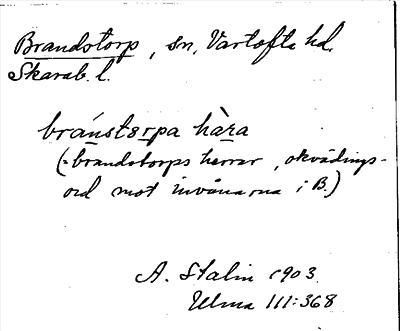 Brandstorp, sn, Vartofta hd.
Skarab. l.
bránstərpa hàra
(= brandstorps herrar, okvädings-
ord mot invånarna i B.)
A. Stalin 1903
Ulma 111:368